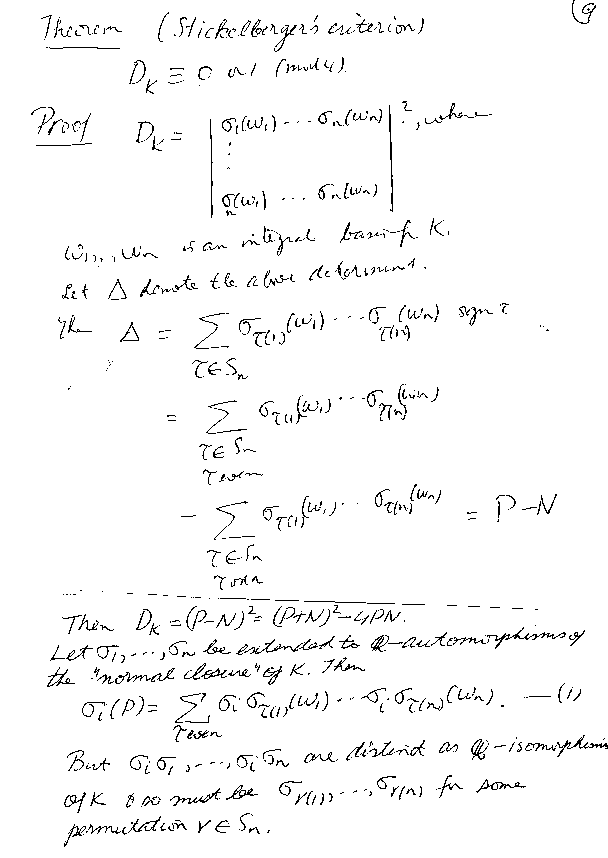 9
Theorem (Stickelberger's criterion)
D_K ≡ 0 or 1 (mod 4).
Proof D_K = | σ_1(ω_1) ... σ_n(ω_n) |^2, where
⋮
σ_n(ω_1) ... σ_n(ω_n)
ω_1, , ω_n is an integral basis for K.
Let Δ denote the above determinant.
Then Δ = ∑ σ_τ(1)(ω_1) ... σ_τ(n)(ω_n) sgn τ
τ ∈ S_n
= ∑ σ_τ(1)(ω_1) ... σ_τ(n)(ω_n)
τ ∈ S_n
τ even
- ∑ σ_τ(1)(ω_1) ... σ_τ(n)(ω_n) = P-N
τ ∈ S_n
τ odd
Then D_K = (P-N)^2 = (P+N)^2 - 4PN.
Let σ_1, ..., σ_n be extended to Q-automorphisms of
the "normal closure" of K. Then
σ_i(P) = ∑ σ_i σ_τ(1)(ω_1) ... σ_i σ_τ(n)(ω_n). — (1)
τ even
But σ_i σ_1, ..., σ_i σ_n are distinct as Q-isomorphisms
of K & so must be σ_ν(1), ..., σ_ν(n) for some
permutation ν ∈ S_n.